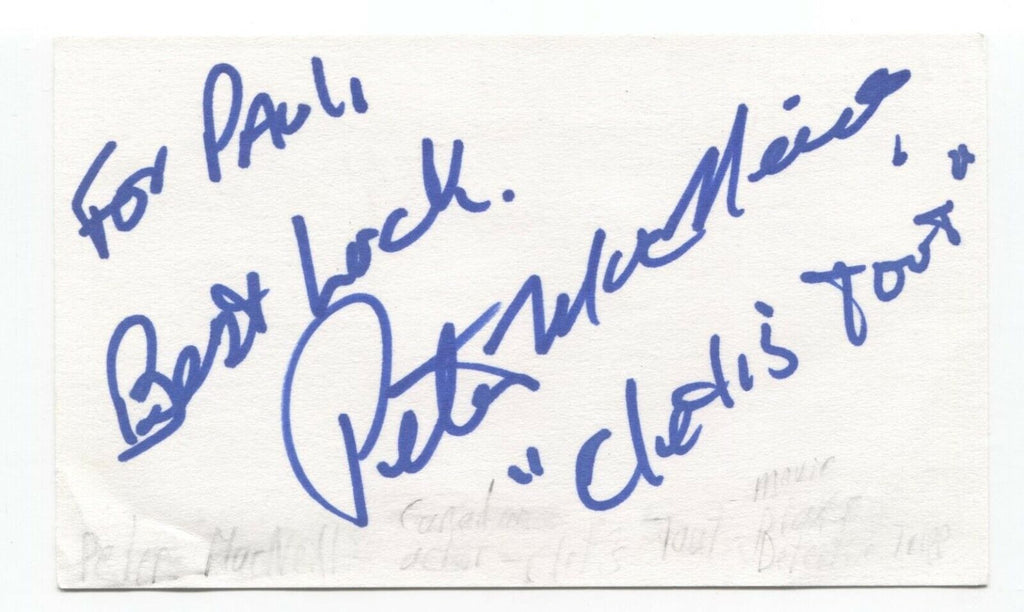 For Paul,
Best Luck.
Peter MacNeill,
"Cletis Tout"
Peter MacNeill Canadian actor - Cletis Tout - movie
Detective Tripp